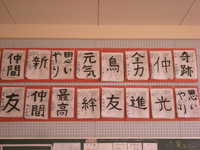 仲間 新 思いやり 元気 鳥 全力 仲 奇跡
友 仲間 最高 絆 友 進 光 思いやり